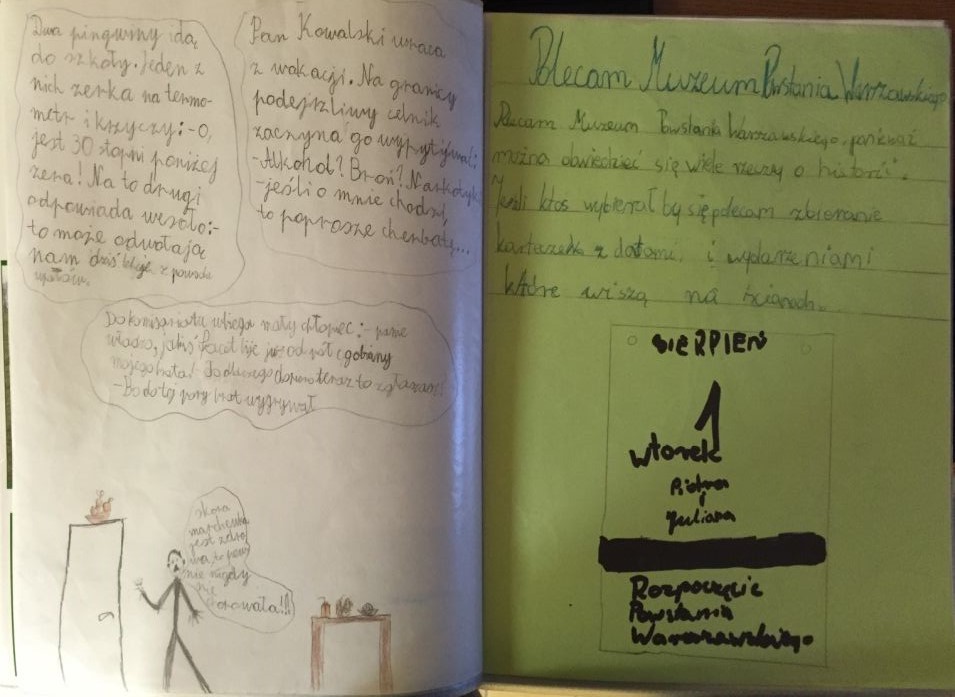 Dwa pingwiny idą
do szkoły. Jeden z
nich zerka na termo-
metr i krzyczy:-O,
jest 30 stopni poniżej
zera! Na to drugi
odpowiada wesoło:-
to może odwołają
nam dziś lekcje z powodu
upałów.
Pan Kowalski wraca
z wakacji. Na granicy
podejrzliwy celnik
zaczyna go wypytywać:
-Alkohol? Broń? Narkotyki
-jeśli o mnie chodzi,
to poproszę cherbatę...
Do komisariatu wbiega mały chłopiec:- panie
władzo, jakiś facet bije już od pół godziny
mojego brata! To dlaczego dopiero teraz to zgłaszasz!
-Bo do tej pory brat wygrywał
skoro
marchewka
jest zdro
wa, to pew
nie nigdy
nie
chorowała!!!
Polecam Muzeum Powstania Warszawskiego
Polecam Muzeum Powstania Warszawskiego, ponieważ
można dowiedzieć się wiele rzeczy o historii.
Jeśli ktoś wybierał by się polecam zbieranie
karteczek z datami, i wydarzeniami
które wiszą na ścianach.
SIERPIEŃ
1
Wtorek
Piotra
i
Juliana
Rozpoczęcie
Powstania
Warszawskiego